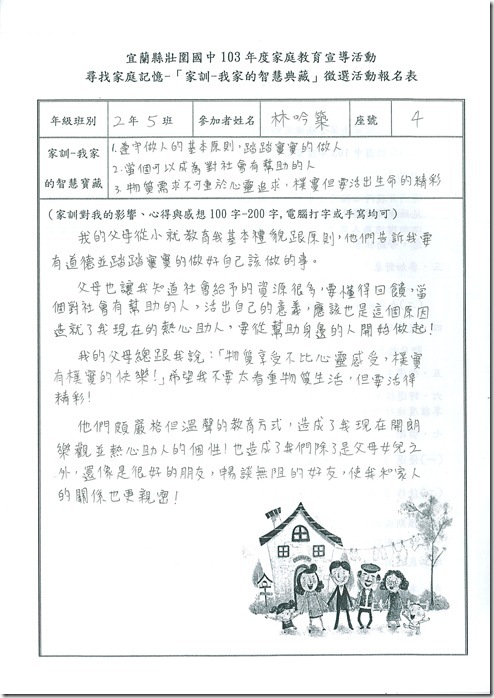 宜蘭縣壯圍國中 103 年度家庭教育宣導活動
尋找家庭記憶-「家訓-我家的智慧典藏」徵選活動報名表
年級班別 2年5班 參加者姓名 林吟築 座號 4
家訓-我家的智慧寶藏
1.遵守做人的基本原則,踏踏實實的做人
2.當個可以成為對社會有幫助的人
3.物質需求不可重於心靈追求,樸實但要活出生命的精彩
(家訓對我的影響、心得與感想 100 字-200 字,電腦打字或手寫均可)
我的父母從小就教育我基本禮貌跟原則,他們告訴我要
有道德並踏踏實實的做好自己該做的事。
父母也讓我知道社會給予的資源很多,要懂得回饋,當
個對社會有幫助的人,活出自己的意義,應該也是這個原因
造就了我現在的熱心助人,要從幫助身邊的人開始做起!
我的父母總跟我說:「物質享受不比心靈感受,樸實
有樸實的快樂!」希望我不要太看重物質生活,但要活得
精彩!
他們頗嚴格但溫馨的教育方式,造成了我現在開朗
樂觀並熱心助人的個性!也造成了我們除了是父母女兒之
外,還像是很好的朋友,暢談無阻的好友,使我和家人
的關係也更親密!